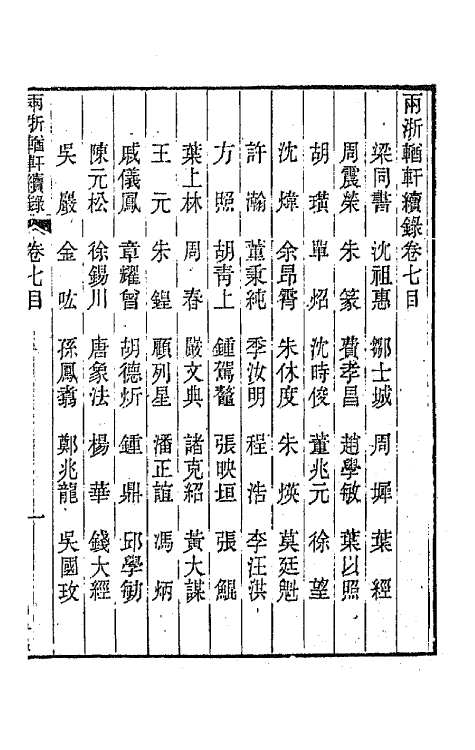 兩浙輶軒續錄卷七目
梁同書　沈祖惠　鄒士城　周墀　葉經
周震榮　朱篆　費孝昌　趙學敏　葉以照
胡璜　單炤　沈時俊　董兆元　徐望
沈煒　余昂霄　朱休度　朱煐　莫廷魁
許瀚　董秉純　季汝明　程浩　李汪淇
方照　胡青上　鍾駕鼇　張映垣　張鯤
葉上林　周春　嚴文典　諸克紹　黃大謀
王元　朱鍠　顧列星　潘正誼　馮炳
戚儀鳳　章耀曾　胡德炘　鍾鼎　邱學勄
陳元松　徐錫川　唐象法　楊華　錢大經
吳嚴　金呟　孫鳳翥　鄭兆龍　吳國玫
兩浙輶軒續錄　卷七目　一